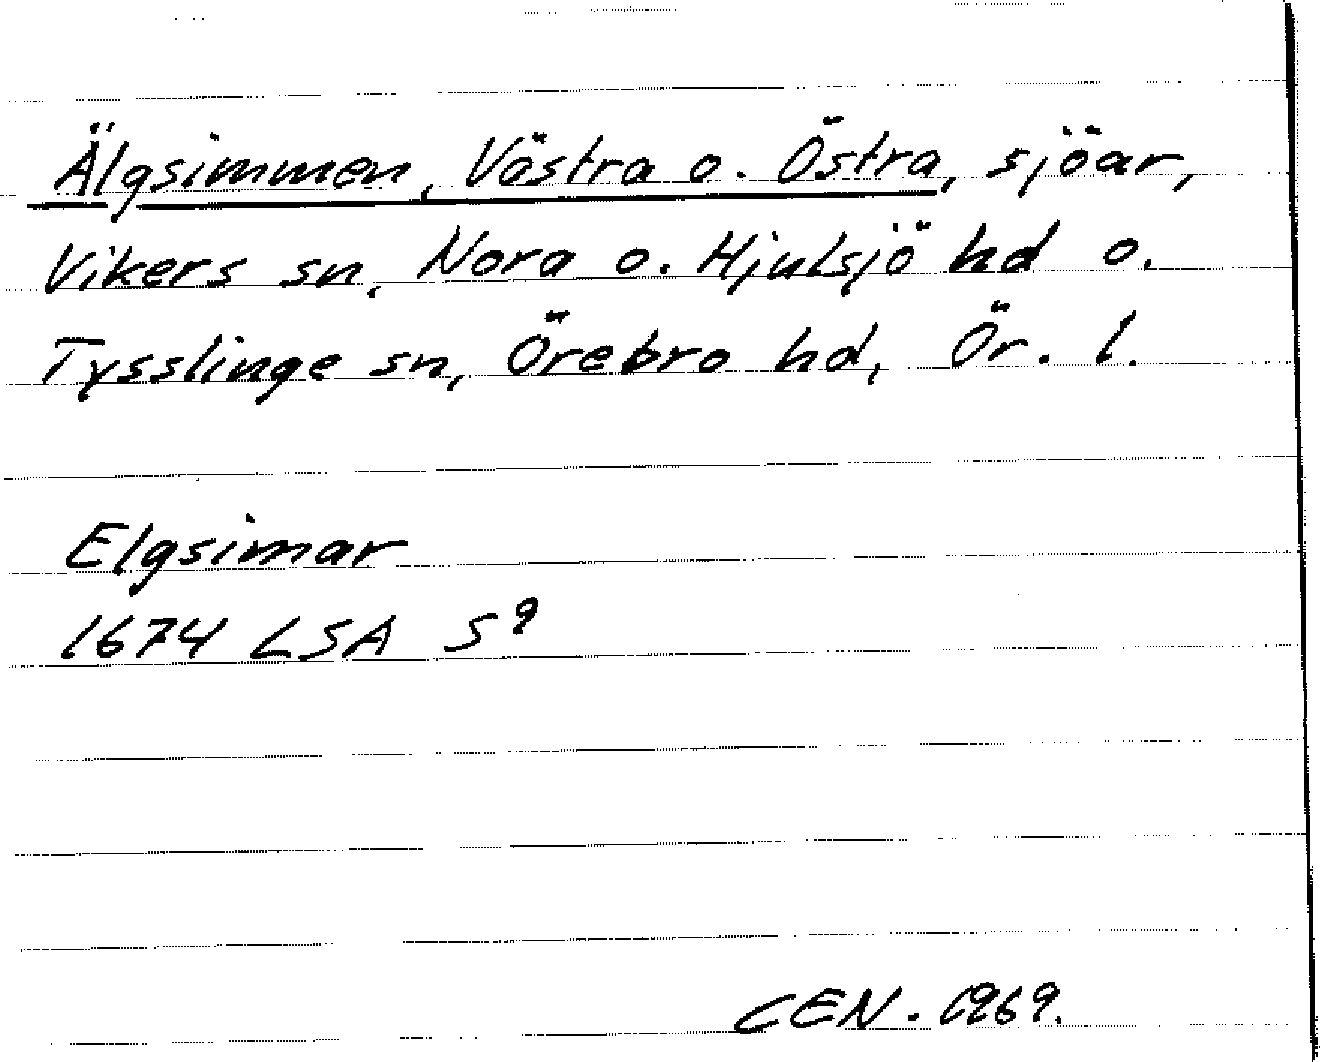 Älgsimmen, Västra o. Östra, sjöar,
Vikers sn, Nora o. Hjulsjö hd o.
Tysslinge sn, Örebro hd, Ör. l.
Elgsimar
1674 LSA S 9
CEN. 1969.